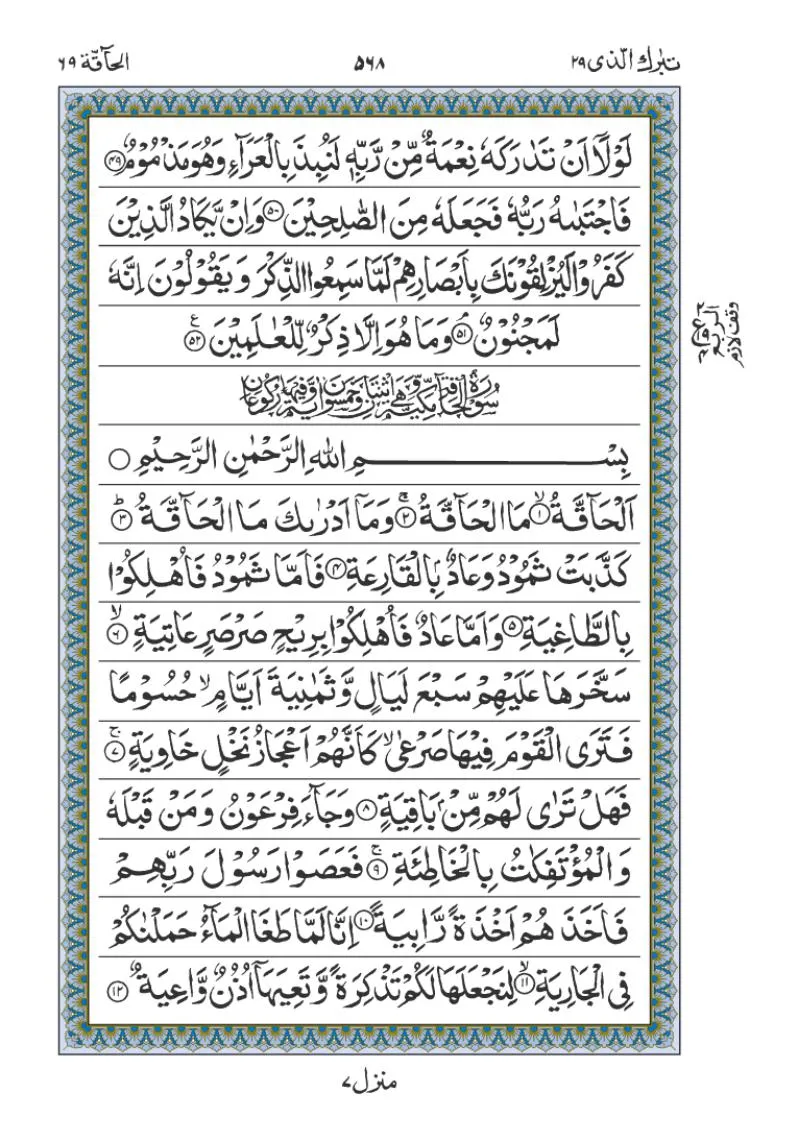 تبٰرك الّذی ٢٩
٥٦٨
الحآقّة ٦٩
لَوْلَاۤ اَنْ تَدٰرَكَهٗ نِعْمَةٌ مِّنْ رَّبِّهٖ لَنُبِذَ بِالْعَرَآءِ وَهُوَ مَذْمُوْمٌ ٤٩
فَاجْتَبٰىهُ رَبُّهٗ فَجَعَلَهٗ مِنَ الصّٰلِحِيْنَ ٥٠ وَاِنْ يَّكَادُ الَّذِيْنَ
كَفَرُوْا لَيُزْلِقُوْنَكَ بِاَبْصَارِهِمْ لَمَّا سَمِعُوا الذِّكْرَ وَيَقُوْلُوْنَ اِنَّهٗ
لَمَجْنُوْنٌ ۘ ٥١ وَمَا هُوَ اِلَّا ذِكْرٌ لِّلْعٰلَمِيْنَ ع ٥٢
وقف لازم
سُوْرَةُ الْحَآقَّةِ مَكِّيَّةٌ وَّهِيَ اثْنَتَانِ وَخَمْسُوْنَ اٰيَةً وَّفِيْهَا رُكُوْعَانِ
بِسْمِ اللهِ الرَّحْمٰنِ الرَّحِيْمِ
اَلْحَآقَّةُ ۙ ١ مَا الْحَآقَّةُ ۚ ٢ وَمَاۤ اَدْرٰىكَ مَا الْحَآقَّةُ ؕ ٣
كَذَّبَتْ ثَمُوْدُ وَعَادٌۢ بِالْقَارِعَةِ ٤ فَاَمَّا ثَمُوْدُ فَاُهْلِكُوْا
بِالطَّاغِيَةِ ٥ وَاَمَّا عَادٌ فَاُهْلِكُوْا بِرِيْحٍ صَرْصَرٍ عَاتِيَةٍ ۙ ٦
سَخَّرَهَا عَلَيْهِمْ سَبْعَ لَيَالٍ وَّثَمٰنِيَةَ اَيَّامٍ ۙ حُسُوْمًا
فَتَرَى الْقَوْمَ فِيْهَا صَرْعٰى ۙ كَاَنَّهُمْ اَعْجَازُ نَخْلٍ خَاوِيَةٍ ۚ ٧
فَهَلْ تَرٰى لَهُمْ مِّنْۢ بَاقِيَةٍ ٨ وَجَآءَ فِرْعَوْنُ وَمَنْ قَبْلَهٗ
وَالْمُؤْتَفِكٰتُ بِالْخَاطِئَةِ ۚ ٩ فَعَصَوْا رَسُوْلَ رَبِّهِمْ
فَاَخَذَهُمْ اَخْذَةً رَّابِيَةً ١٠ اِنَّا لَمَّا طَغَا الْمَآءُ حَمَلْنٰكُمْ
فِى الْجَارِيَةِ ۙ ١١ لِنَجْعَلَهَا لَكُمْ تَذْكِرَةً وَّتَعِيَهَاۤ اُذُنٌ وَّاعِيَةٌ ١٢
منزل ٧